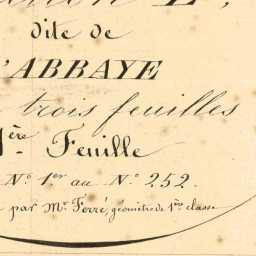 dite de
L'ABBAYE
trois feuilles
1ère Feuille
N° 1er au N° 252.
par Mr. Ferré, géomètre de 1ère classe